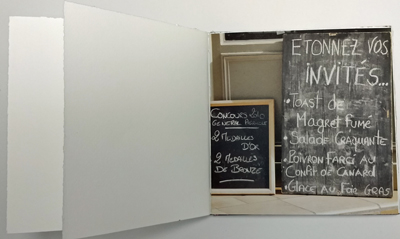 CONCOURS
GENERAL AGRICOLE
2 MEDAILLES
D'OR
2 MEDAILLES
DE BRONZE
ETONNEZ VOS
INVITÉS...
• TOAST DE
MAGRET FUMÉ
• SALADE CRAQUANTE
• POIVRON FARCI AU
CONFIT DE CANARD
• GLACE AU FOIE GRAS